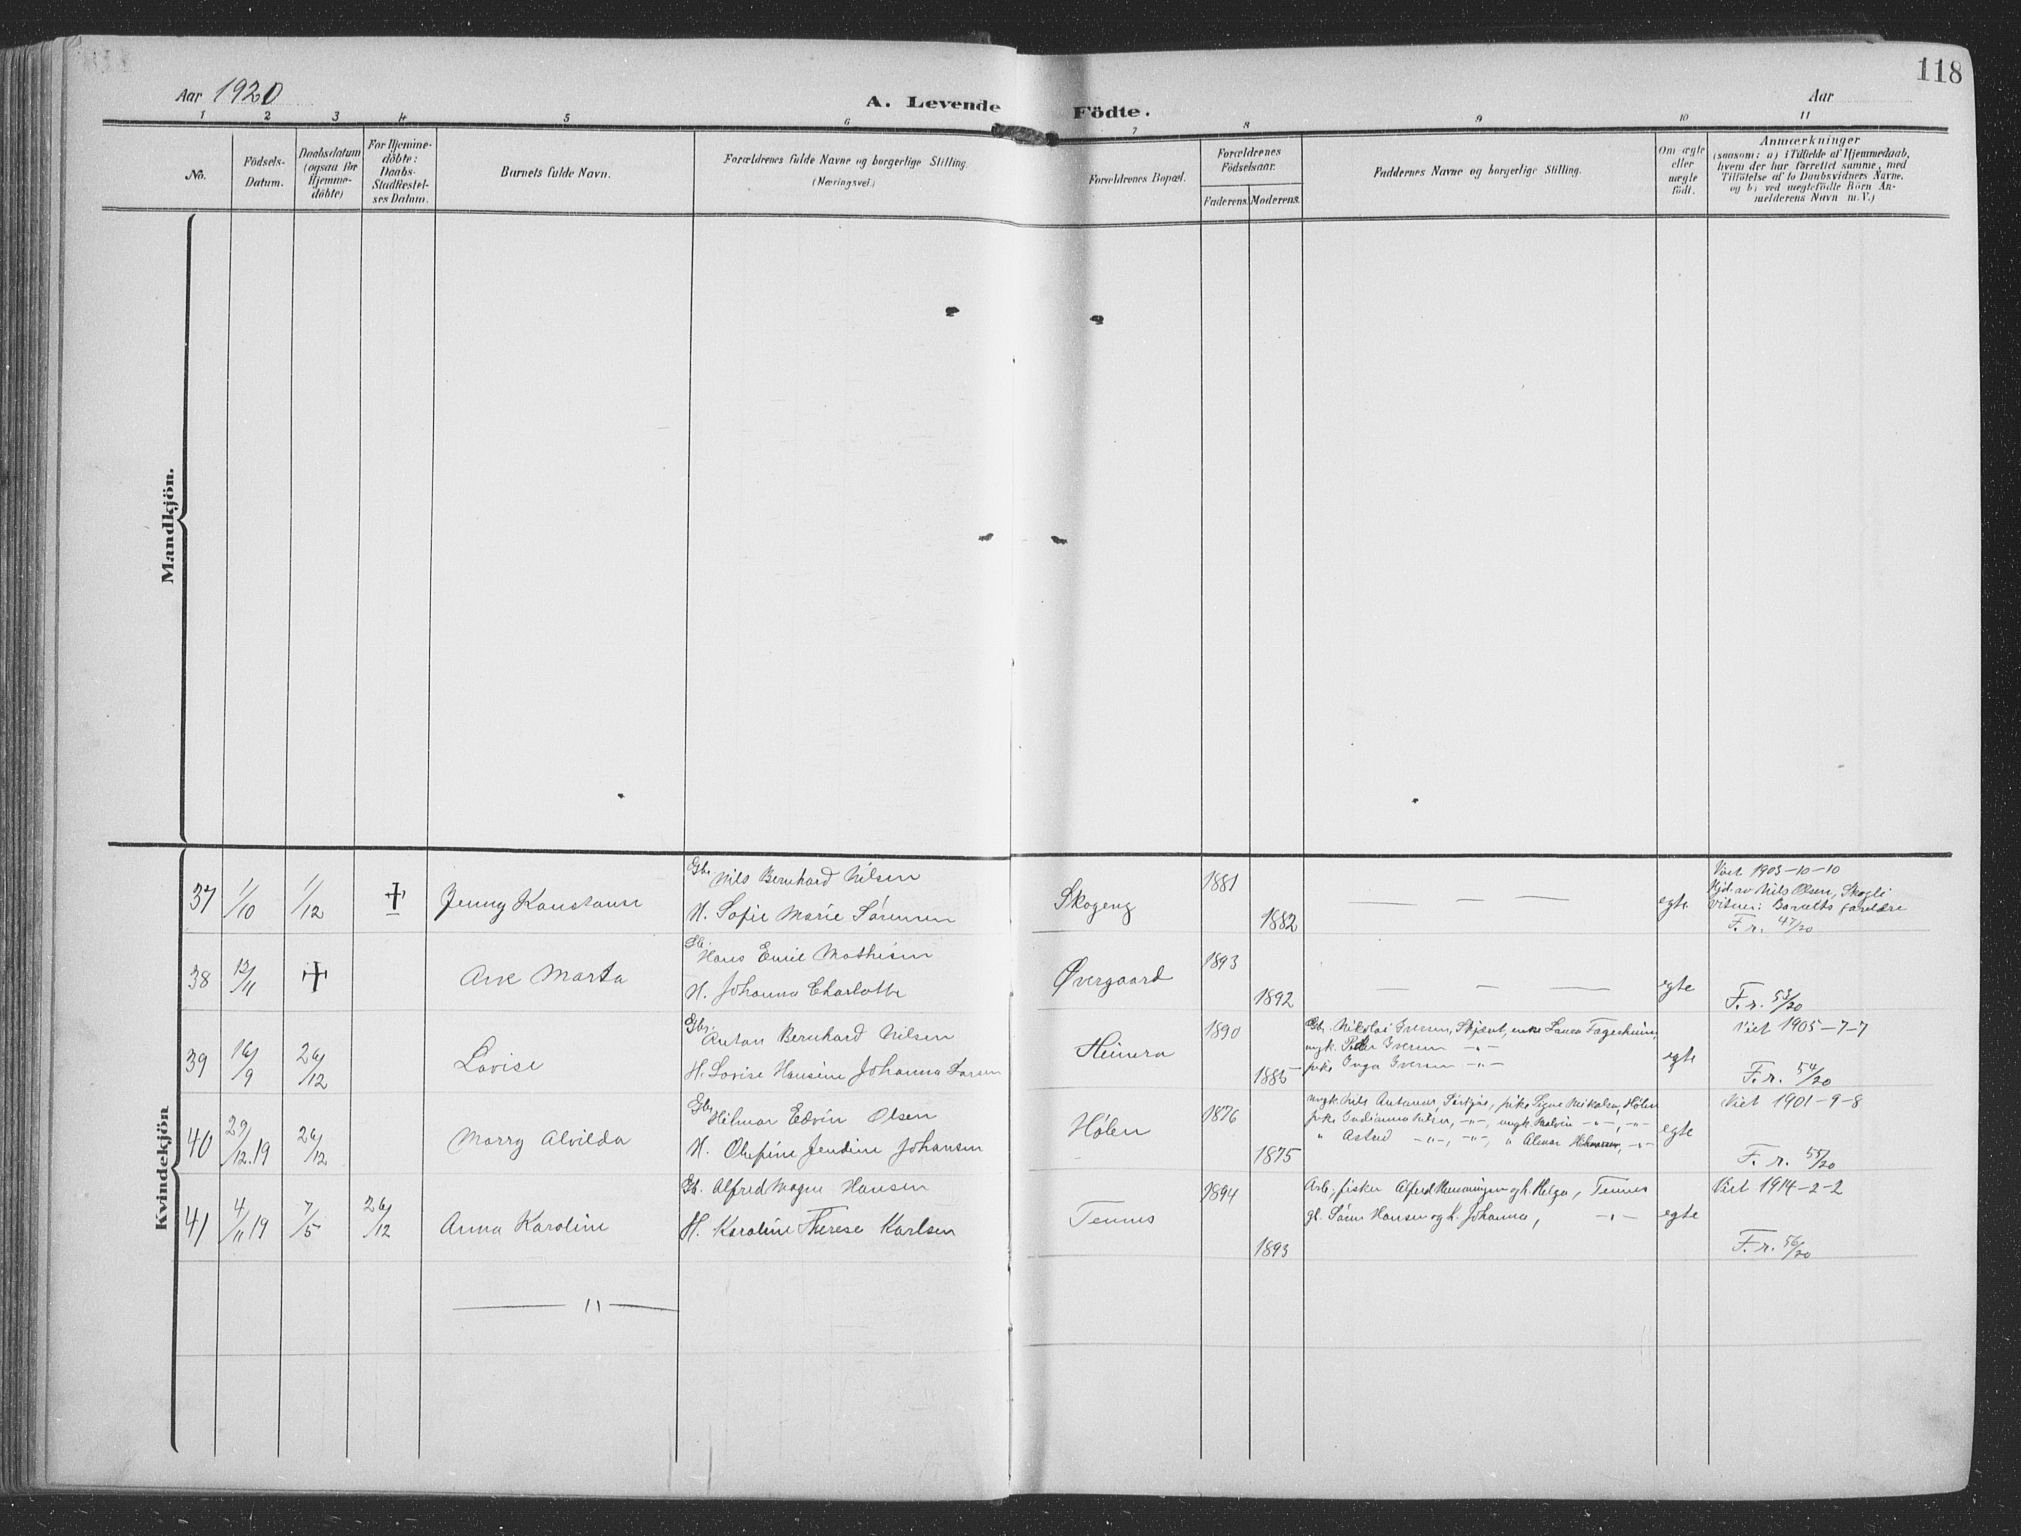 118
Aar 1920
A. Levende Födte.
Aar
1 2 3 4 5 6 7 8 9 10 11
No.
Födsels-
Datum.
Daabsdatum
(ogsaa för
Hjemme-
döbte)
For Hjemme-
döbte:
Daabs-
Stadfæstel-
ses Datum.
Barnets fulde Navn.
Forældrenes fulde Navne og borgerlige Stilling.
(Næringsvei.)
Forældrenes Bopæl.
Forældrenes
Födselsaar.
Faderens. Moderens.
Faddernes Navne og borgerlige Stilling.
Om ægte
eller
uægte
födt.
Anmærkninger
(saasom: a) i Tilfælde af Hjemmedaab,
hvem der har forrettet samme, med
Tilföielse af to Daabsvidners Navne.
og b) ved uægtefödte Börn An-
melderens Navn m. V.)
Mandkjön.
Kvindekjön
37 1/10 1/12 Jenny Konstanse
Gbr. Nils Bernhard Nilsen
H. Sofie Marie Sørensen
Skogeng
1881
1882
— — —
egte
Viet 1903-10-10
Hjd. av Nils Olsen, Skogli
Vitner: Barnets forældre
F. r. 47/20
38 12/11 Ane Marta
Hans Emil Mathisen
H. Johanna Charlotte
Øvergaard
1893
1892
— — —
egte
F. r. 53/20
39 16/9 26/12 Lovise
Gbr. Anton Bernhard Nilsen
H. Lovise Hansine Johanna Larsen
Heimro
1890
1885
Gbr. Nikolai Iversen, Skjævt, enke Laura Fagerheim,
ungk. Peder Iversen -"-
pike Inga Iversen -"-
egte
Viet 1905-7-7
F. r. 54/20
40 29/12.19 26/12 Marry Alvilda
Gbr. Hilmar Edvin Olsen
H. Olufine Jendine Johansen
Hølen
1876
1875
ungk. Nils Antonus, pike Signe Nikolsen, Hølen
pike -"-, -"-, ungk. -"-, -"-
" Astrid -"-, -"-, " -"-
egte
Viet 1901-9-8
F. r. 55/20
41 4/11 19 7/5 26/12 Anna Karoline
Gb. Alfred Magne Hansen
H. Karoline Therese Karlsen
Tennes
1894
1893
Arb., fisker Alfred Henningsen og h. Helga, Tennes
gb. Søren Hansen og h. Johanna, -"-
egte
Viet 1914-2-2
F. r. 56/20
— 11 —